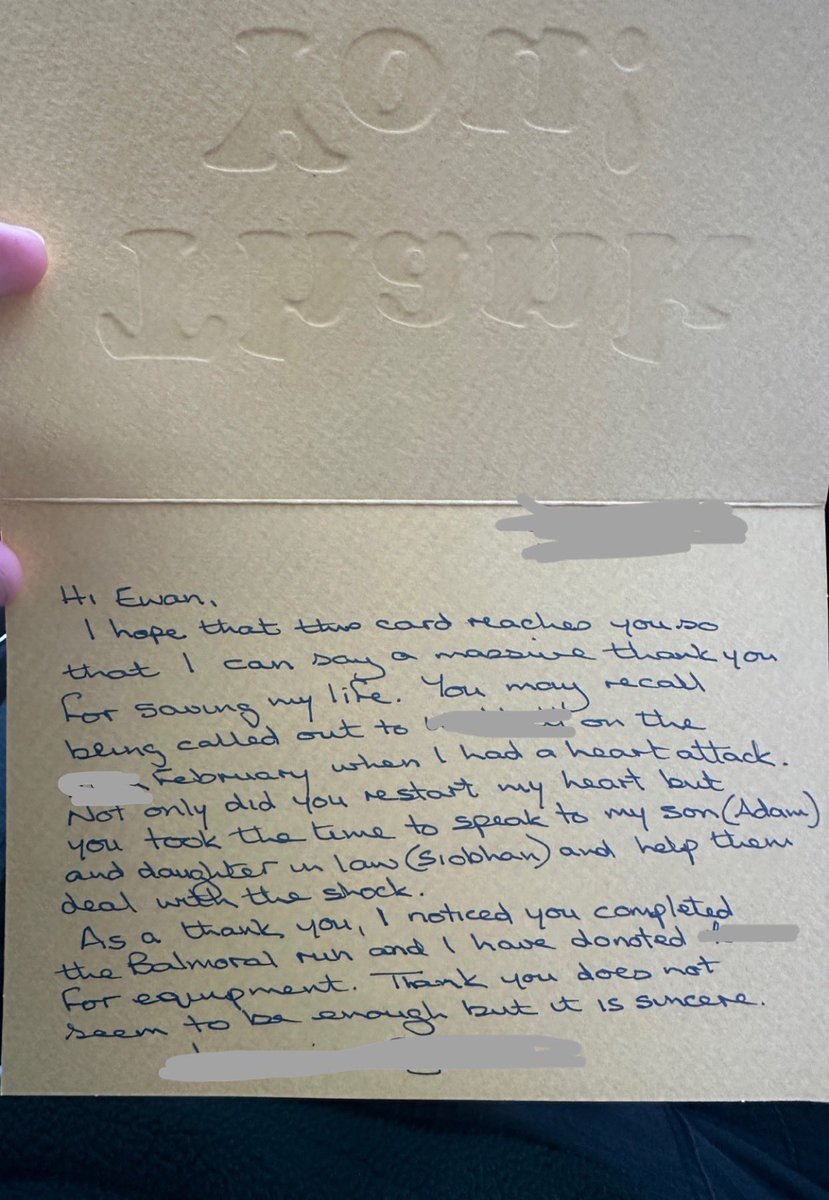 Thank
You!
Hi Ewan,
I hope that this card reaches you so
that I can say a massive thank you
for saving my life. You may recall
being called out to on the
February when I had a heart attack.
Not only did you restart my heart but
you took the time to speak to my son (Adam)
and daughter in law (Siobhan) and help them
deal with the shock.
As a thank you, I noticed you completed
the Balmoral run and I have donated
for equipment. Thank you does not
seem to be enough but it is sincere.